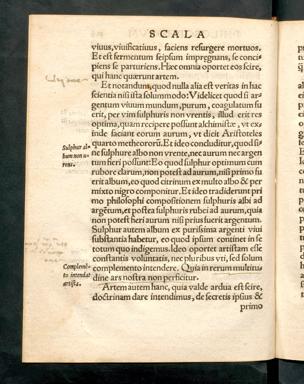 SCALA
viuus, viuificatiuus, faciens resurgere mortuos.
Et est fermentum seipsum imprægnans, se conci-
piens se parturiens. Hæc omnia oportet eos scire,
qui hanc quærunt artem.
Et notandum, quod nulla alia est veritas in hac
scientia nisi ista solummodo: Videlicet quod si ar-
gentum viuum mundum, purum, coagulatum fu
erit, per vim sulphuris non vrentis, illud erit res
optima, quam recipere possunt alchimistæ, vt ex
inde faciant eorum aurum, vt dicit Aristoteles
quarto metheororũ. Et ideo concluditur, quod si-
ne sulphure albo non vrente, nec aurum nec argen
tum fieri possunt: Eo quod sulphur optimum cum
rubore clarum, non potest ad aurum, nisi primo fu
erit album, eo quod citrinum ex multo albo & per
mixto nigro componitur. Et ideo tradiderunt pri
mo philosophi compositionem sulphuris albi ad
argẽtum, et postea sulphuris rubei ad aurum, quia
non potest fieri aurum nisi prius fuerit argentum.
Sulphur autem album ex purissima argenti viui
substantia habetur, eo quod ipsum continet in se
totum quo indigemus. Ideo oportet artistam esse
constantis voluntatis, nec pluribus vti, sed solum
complemento intendere. Quia in rerum multitu
dine ars nostra non perficitur.
Artem autem hanc, quia valde ardua est scire,
doctrinam dare intendimus, de secretis ipsius &
primo
Sulphur al-
bum non u-
rens.
Complemẽ-
to intendat
artista.